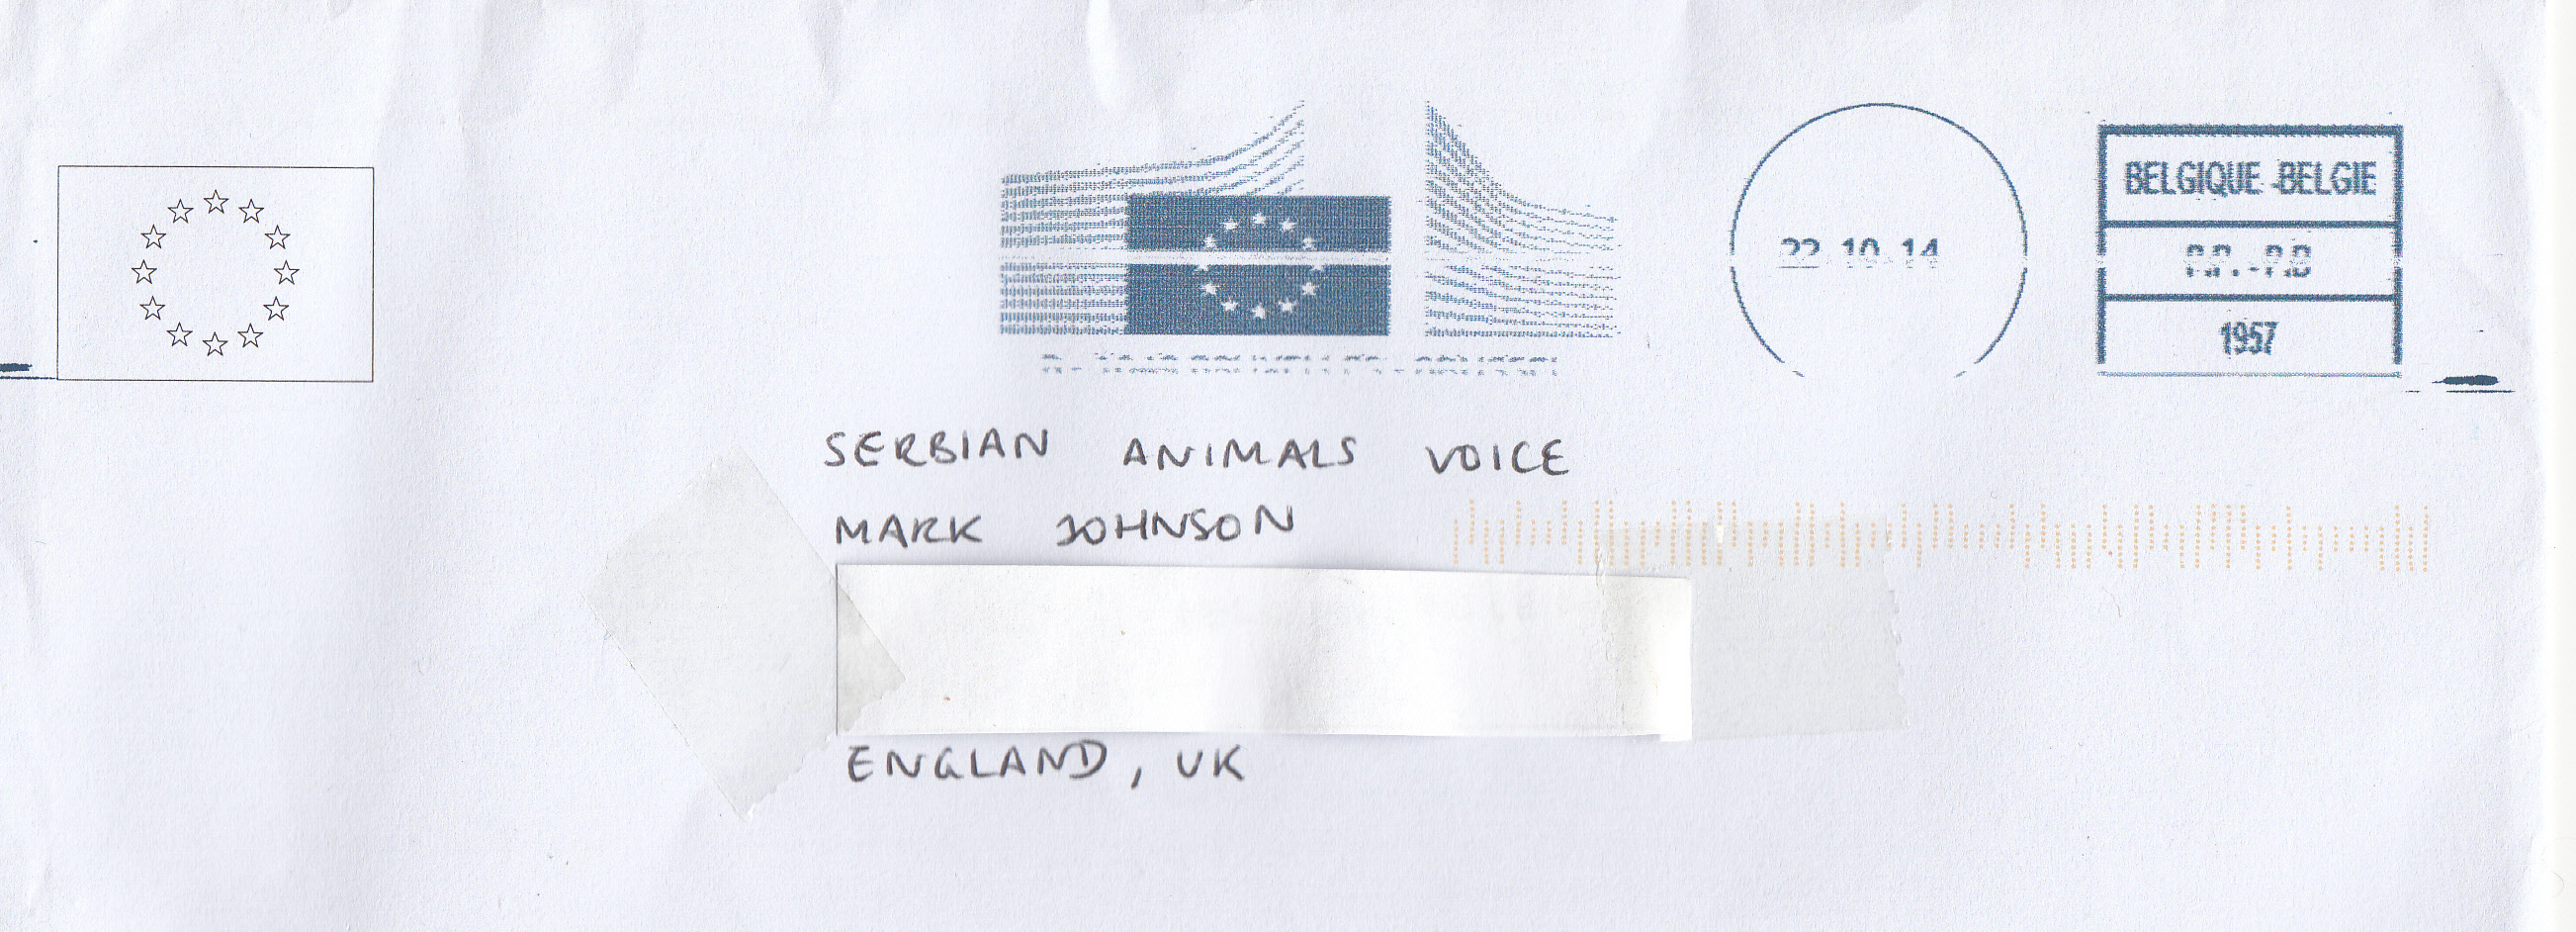 22-10-14
BELGIQUE-BELGIE
P.P.-P.B
1957
SERBIAN ANIMALS VOICE
MARK JOHNSON
ENGLAND, UK